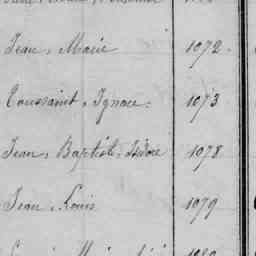 Jean, Marie 1072
Toussaint, Ignace. 1073
Jean, Baptiste, Isidore 1078
Jean, Louis 1079